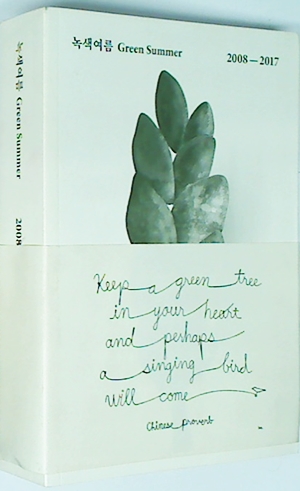 녹색여름 Green Summer
2008 — 2017
녹색여름 Green Summer 2008
Keep a green tree
in your heart
and perhaps
a singing bird
will come
chinese proverb